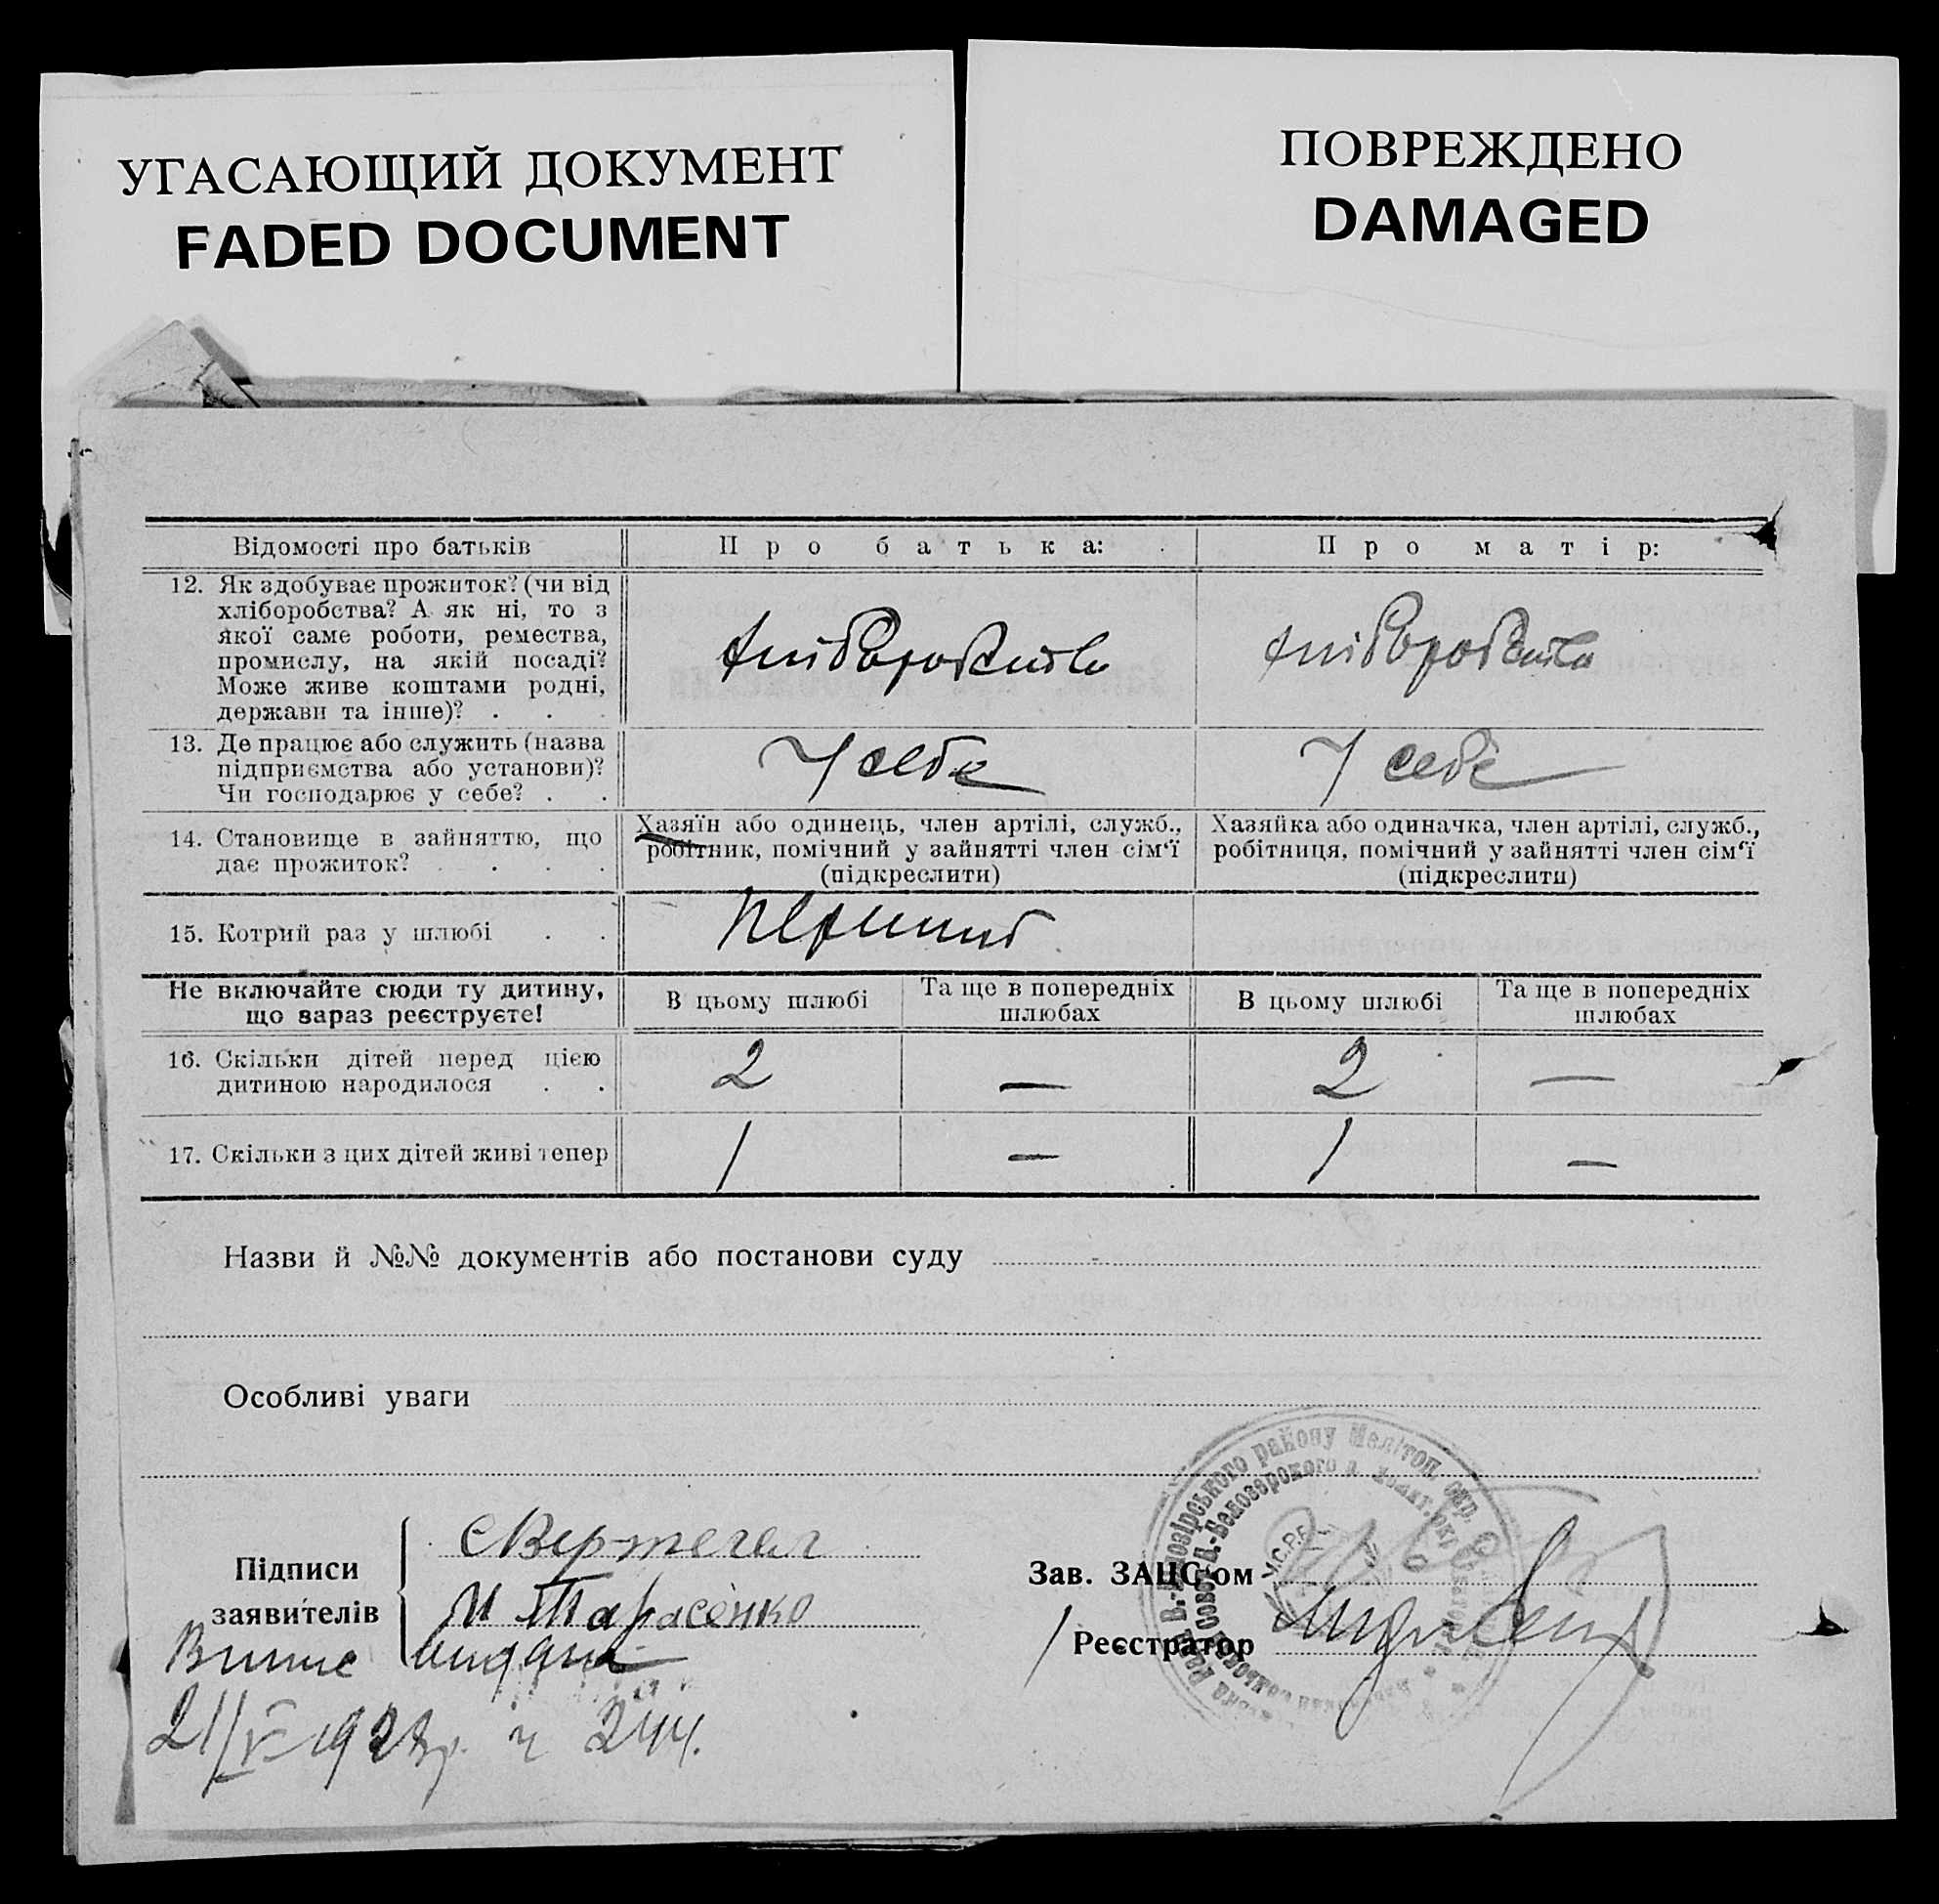 УГАСАЮЩИЙ ДОКУМЕНТ
FADED DOCUMENT
ПОВРЕЖДЕНО
DAMAGED
Відомості про батьків
Про батька:
Про матір:
12. Як здобуває прожиток? (чи від
хліборобства? А як ні, то з
якої саме роботи, ремества,
промислу, на якій посаді?
Може живе коштами родні,
держави та інше)? . . .
хліборобство
хліборобство
13. Де працює або служить (назва
підприємства або установи)?
Чи господарює у себе? . .
У себе
У себе
14. Становище в зайняттю, що
дає прожиток? . . . .
Хазяїн або одинець, член артілі, служб.,
робітник, помічний у зайнятті член сім'ї
(підкреслити)
Хазяйка або одиначка, член артілі, служб.,
робітниця, помічний у зайнятті член сім'ї
(підкреслити)
15. Котрий раз у шлюбі . .
перший
Не включайте сюди ту дитину,
що зараз реєструєте!
В цьому шлюбі
Та ще в попередніх
шлюбах
В цьому шлюбі
Та ще в попередніх
шлюбах
16. Скільки дітей перед цією
дитиною народилося . .
2
—
2
—
17. Скільки з цих дітей живі тепер
1
—
1
—
Назви й №№ документів або постанови суду
Особливі уваги
Підписи
заявителів
И Тарасенко
Зав. ЗАЦС'ом
Реєстратор
Випис видана
ч 244.
району Мелітоп. окр.
У.С.Р.Р.